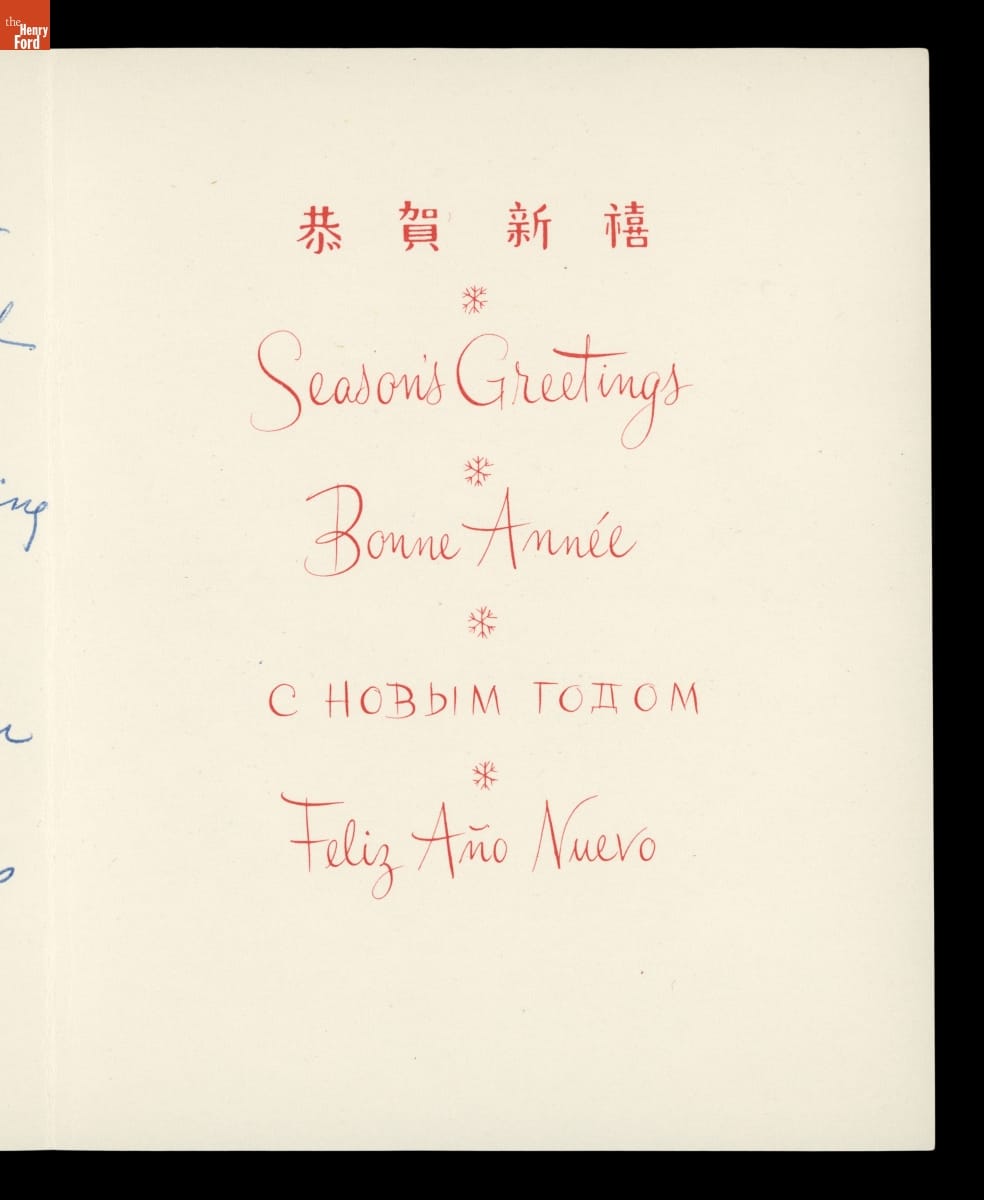 the
Henry
Ford
恭 賀 新 禧
Season's Greetings
Bonne Année
С НОВЫМ ГОДОМ
Feliz Año Nuevo